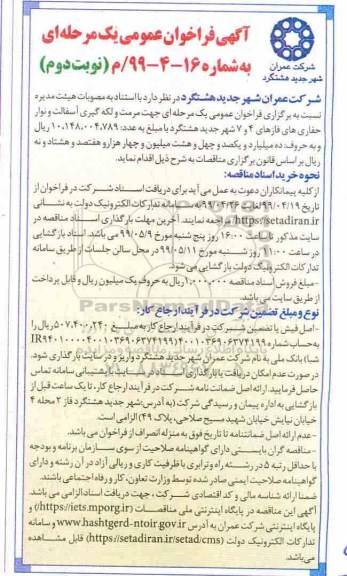 آگهی فراخوان عمومی یک مرحله‌ای
به شماره ۱۶-۴-۹۹/م (نوبت دوم)
شرکت عمران
شهر جدید هشتگرد
شرکت عمران شهر جدید هشتگرد در نظر دارد با استناد به مصوبات هیئت مدیره
نسبت به برگزاری فراخوان عمومی یک مرحله ای جهت مرمت و لکه گیری آسفالت و نوار
حفاری های فازهای ۴ و ۷ شهر جدید هشتگرد با مبلغ به عدد: ۱۰،۱۴۸،۰۰۴،۷۸۹ ریال
و به حروف ده میلیارد و یکصد و چهل و هشت میلیون و چهار هزار و هفتصد و هشتاد و نه
ریال بر اساس قانون برگزاری مناقصات به شرح ذیل اقدام نماید.
نحوه خرید اسناد مناقصه:
از کلیه پیمانکاران دعوت به عمل می آید برای دریافت اسناد شرکت در فراخوان از
تاریخ ۹۹/۰۴/۱۹ لغایت ۹۹/۰۴/۲۶ به سامانه تدارکات الکترونیک دولت به نشانی
https://setadiran.ir مراجعه نمایند. آخرین مهلت بارگذاری اسناد مناقصه در
سایت مذکور تا ساعت ۱۶:۰۰ روز پنج شنبه مورخ ۹۹/۰۵/۹ می باشد. اسناد بازگشایی
در ساعت ۱۱:۰۰ روز شنبه مورخ ۹۹/۰۵/۱۱ در محل سالن جلسات از طریق سامانه
تدارکات الکترونیک دولت بازگشایی می شود.
-مبلغ فروش اسناد مناقصه ۱،۰۰۰،۰۰۰ ریال به حروف یک میلیون ریال و قابل پرداخت
از طریق سایت می باشد.
نوع و مبلغ تضمین شرکت در فرآیند ارجاع کار:
-اصل فیش یا تضمین شرکت در فرآیند ارجاع کار به مبلغ ریال را
به حساب شماره
شبا) بانک ملی به نام شرکت عمران شهر جدید هشتگرد واریز و در سایت بارگذاری شود.
در صورت عدم امکان دریافت یا بارگذاری اسناد در سایت با پشتیبانی سامانه تماس
حاصل فرمایید. ارائه اصل ضمانت نامه شرکت در فرآیند ارجاع کار، تا یک ساعت قبل از
بازگشایی به اداره پیمان و رسیدگی شرکت (به آدرس: شهر جدید هشتگرد فاز ۲ محله ۴
خیابان نیایش خیابان شهید مسیح صلاحی، پلاک ۴۹) الزامی است.
-عدم ارائه اصل ضمانتنامه تا تاریخ فوق به منزله انصراف از فراخوان می باشد.
-مناقصه گران بایستی دارای گواهینامه صلاحیت از سوی سازمان برنامه و بودجه
با حداقل رتبه ۵ در رشته راه و ترابری با ظرفیت کاری و ریالی آزاد در آن رشته و دارای
گواهینامه صلاحیت ایمنی صادر شده توسط وزارت تعاون، کار و رفاه اجتماعی باشند.
ضمنا ارائه شناسه ملی و کد اقتصادی شرکت، جهت دریافت اسناد الزامی می باشد.
آگهی این مناقصه در پایگاه اینترنتی ملی مناقصات (https://iets.mporg.ir) و
پایگاه اینترنتی شرکت عمران به آدرس www.hashtgerd-ntoir.gov.ir و سامانه
تدارکات الکترونیک دولت (https://setadiran.ir/setad/cms) قابل مشاهده
می‌باشد.